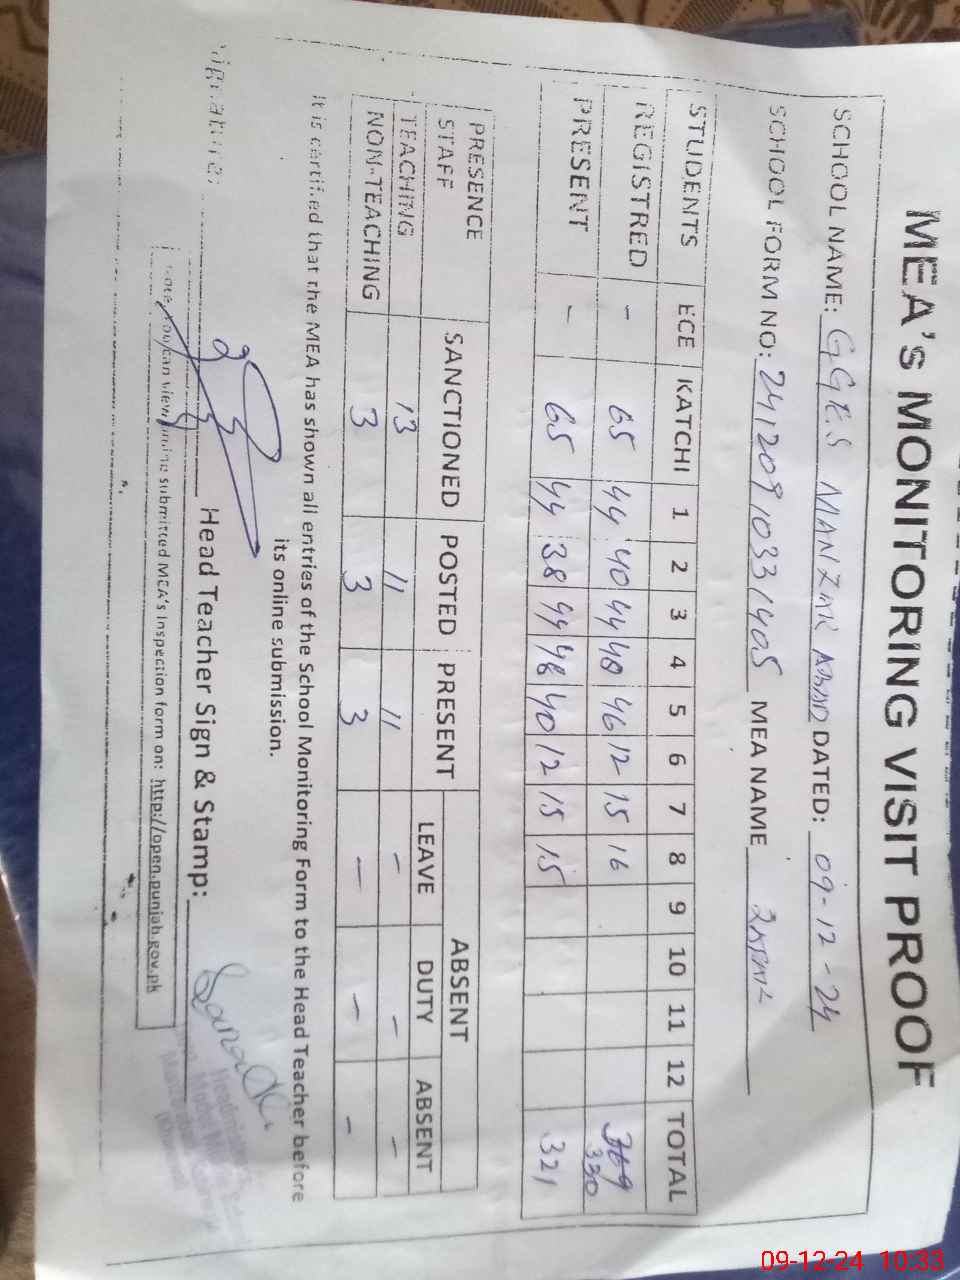 MEA's MONITORING VISIT PROOF
SCHOOL NAME: GGES MANZUR ABAD DATED: 09-12-24
SCHOOL FORM NO: 24120910331405 MEA NAME
STUDENTS ECE KATCHI 1 2 3 4 5 6 7 8 9 10 11 12 TOTAL
REGISTRED - 65 44 40 44 48 46 12 15 16 330
PRESENT - 65 44 38 44 48 40 12 15 15 321
PRESENCE SANCTIONED POSTED PRESENT ABSENT
STAFF LEAVE DUTY ABSENT
TEACHING 13 11 11 - - -
NON-TEACHING 3 3 3 - - -
It is certified that the MEA has shown all entries of the School Monitoring Form to the Head Teacher before
its online submission.
Signature: Head Teacher Sign & Stamp:
you can view online submitted MEA's Inspection form on: http://open.punjab.gov.pk
09-12-24 10:33